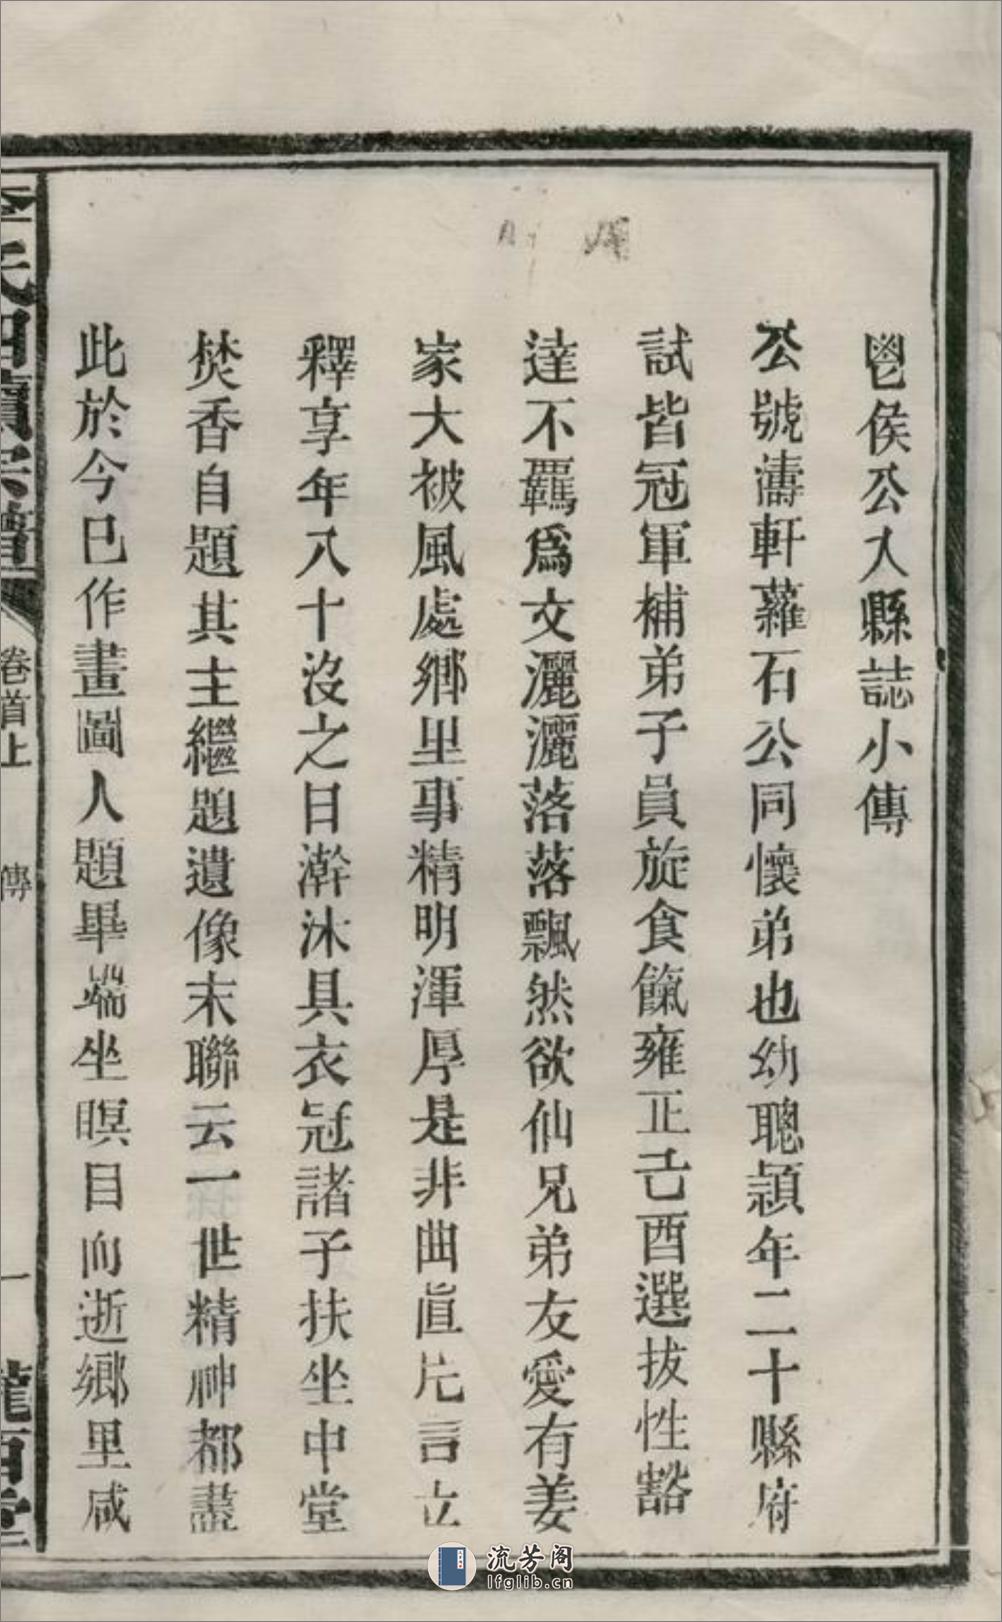 鬯侯公入縣誌小傳
公號濤軒蘿石公同懷弟也幼聰穎年二十縣府
試皆冠軍補弟子員旋食餼雍正己酉選拔性豁
達不羈爲文灑灑落落飄然欲仙兄弟友愛有姜
家大被風處鄉里事精明渾厚是非曲直片言立
釋享年八十沒之日澣沐具衣冠諸子扶坐中堂
焚香自題其主繼題遺像末聯云一世精神都盡
此於今已作畫圖人題畢端坐瞑目而逝鄉里咸
李氏四續宗譜
卷首上
傳
一
龍西堂
流芳阁
lfglib.cn